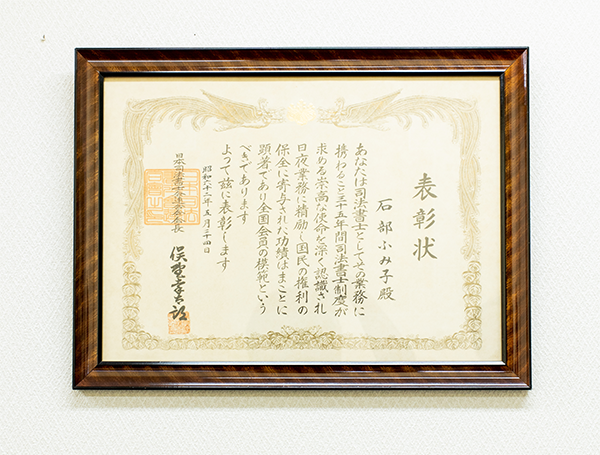 表彰状
石部ふみ子殿
あなたは司法書士としてその業務に
携わること三十五年間司法書士制度が
求める崇高な使命を深く認識され
日夜業務に精励し国民の権利の
保全に寄与された功績はまことに
顕著であり全国会員の模範という
べきであります
よって茲に表彰します
昭和六十二年五月二十四日
日本司法書士会連合会会長